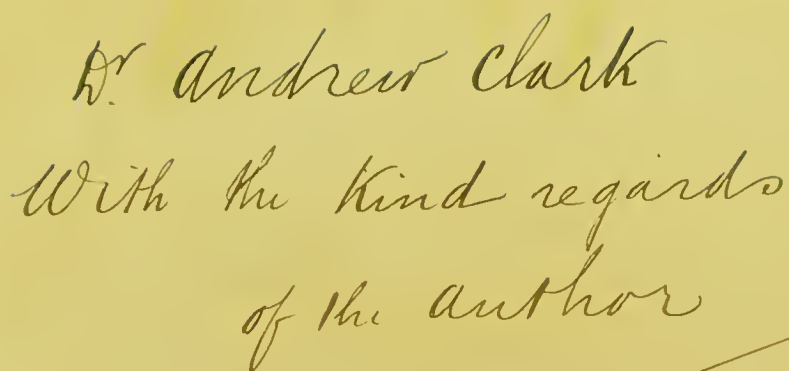 Dr. Andrew Clark
With the Kind regards
of the author